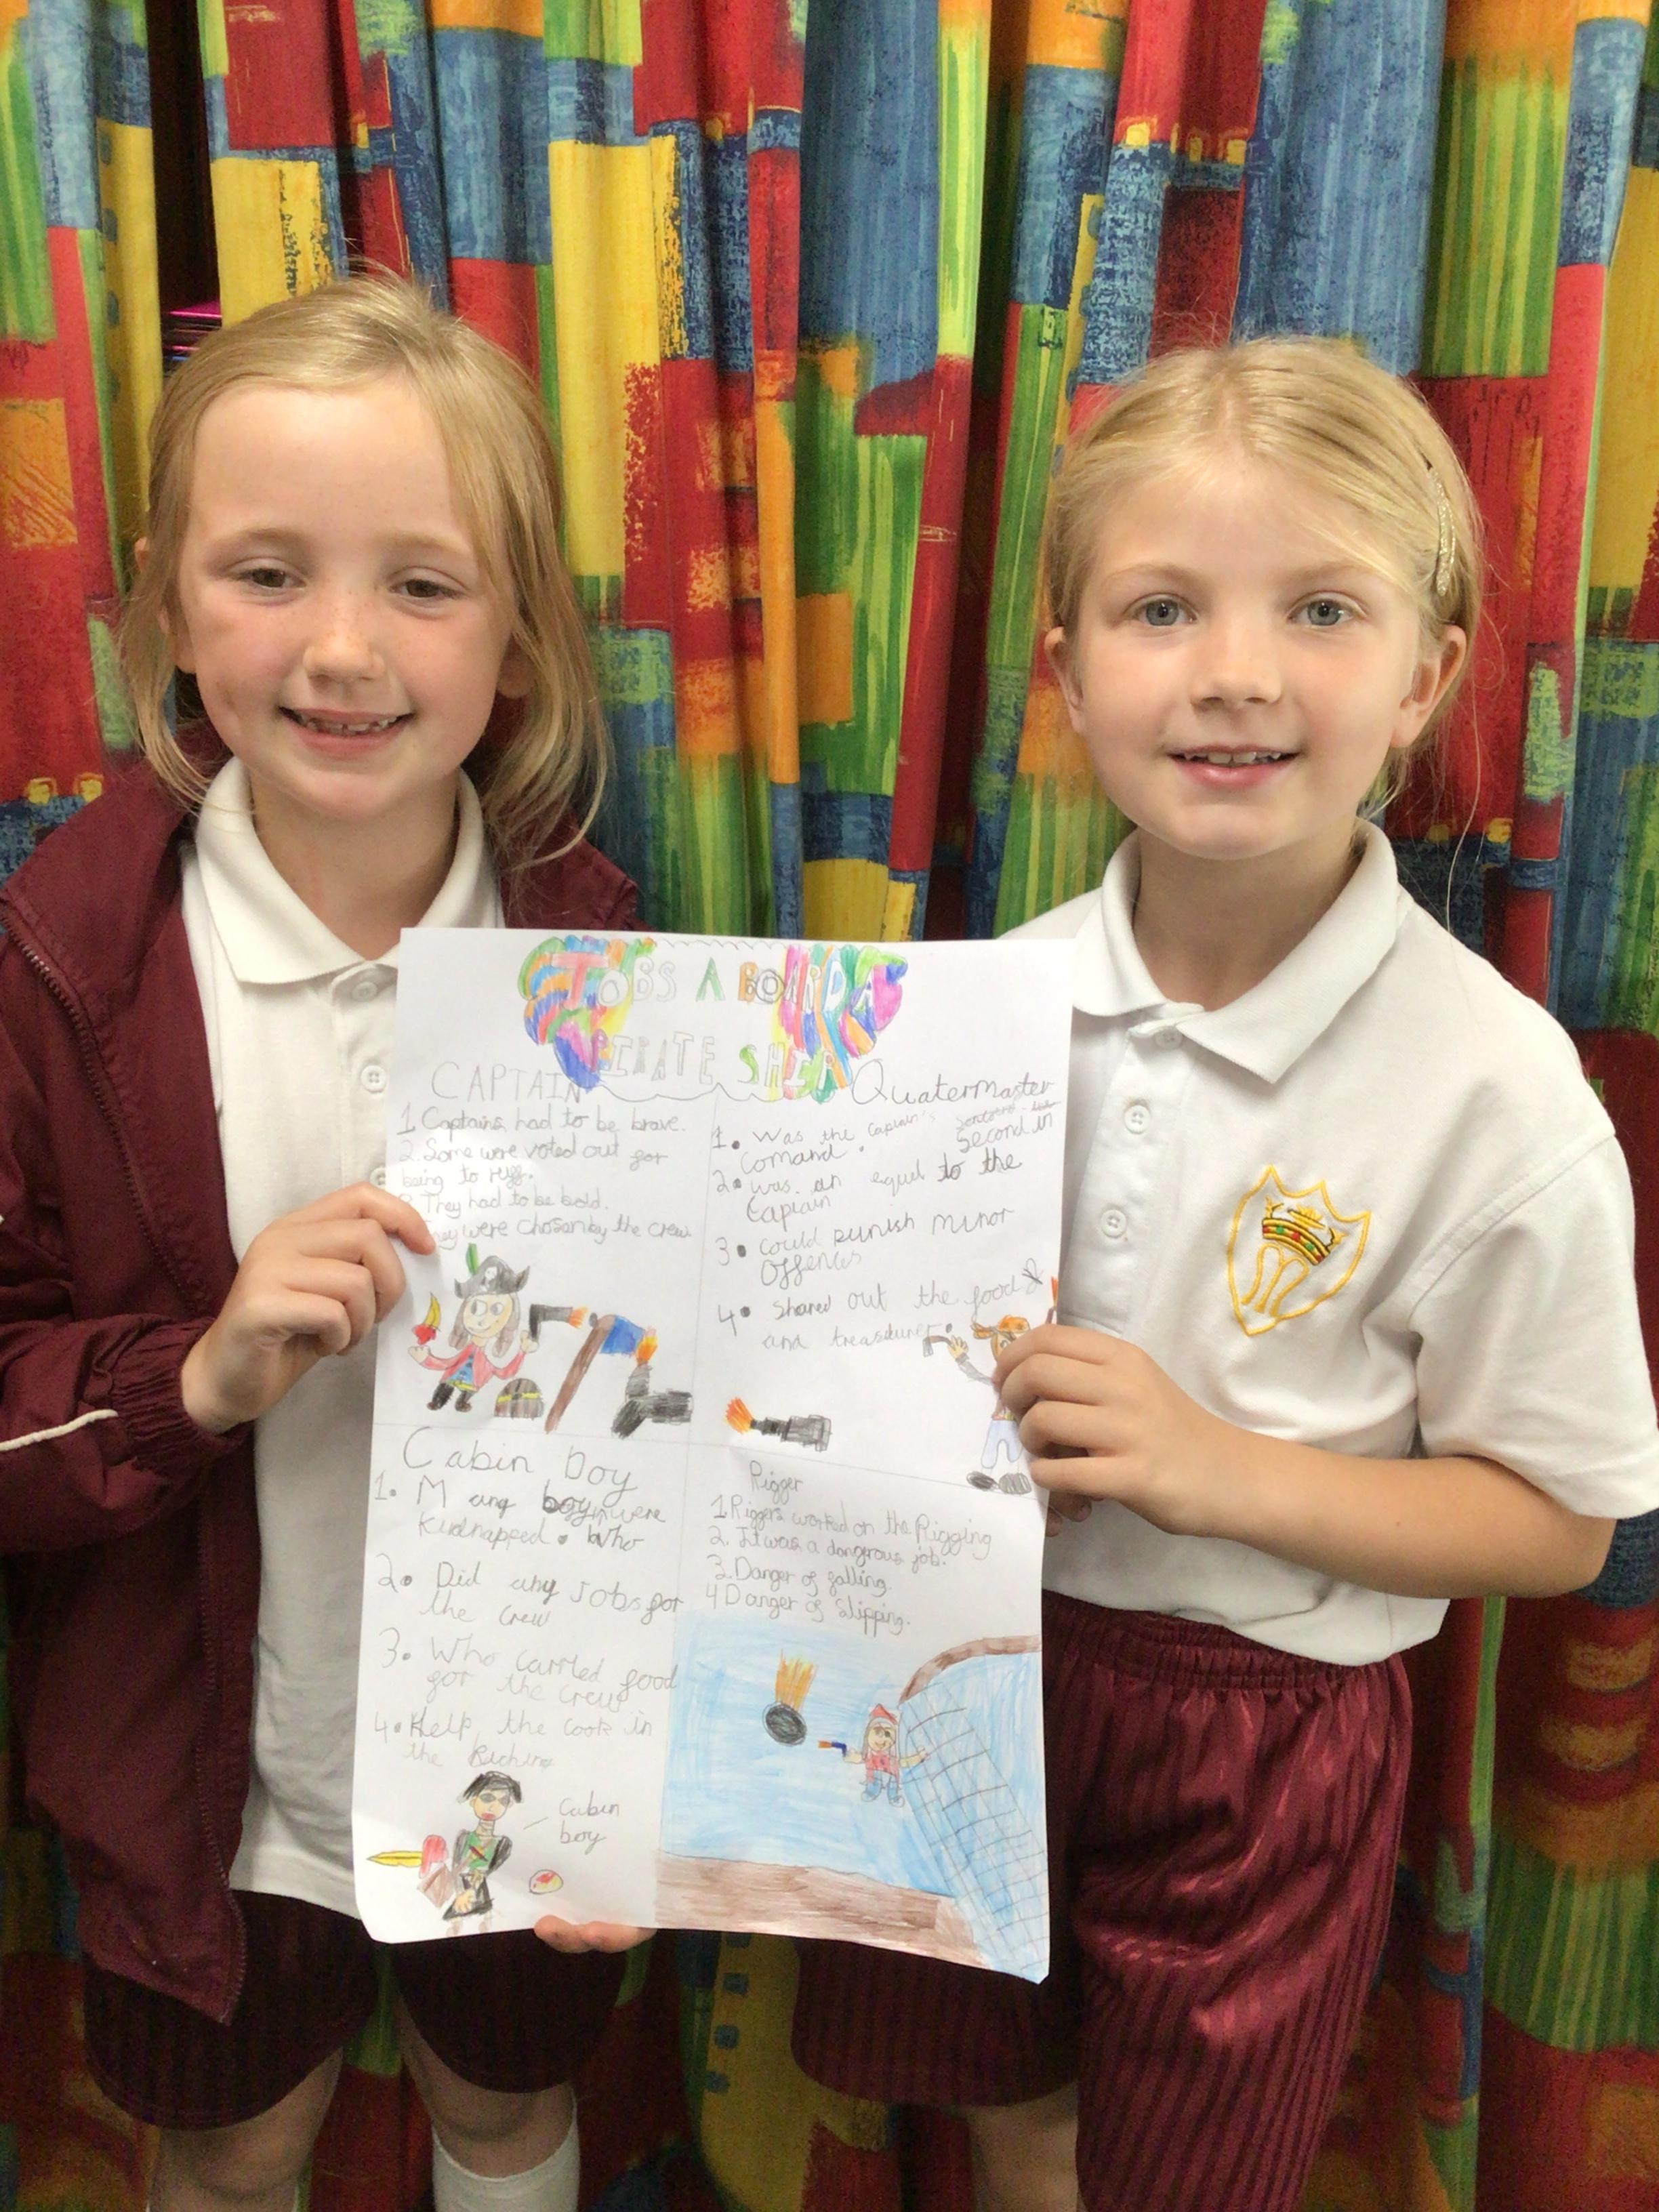 JOBS A BOARD A
PIRATE SHIP
CAPTAIN
1 Captains had to be brave.
2. Some were voted out for
being to ruff.
3 They had to be bold.
They were chosan by the crew
Quatermaster
1. Was the captain's second in
comand.
2. was an equel to the
Captain
3. could punish minor
offences
4. Shared out the food &
and treasurer.
Cabin boy
1. Many boys were
kidnapped. Who
2. Did any jobs for
the crew
3. Who carried food
for the crew
4. Help the cook in
the
Cabin
boy
Rigger
1. Riggers worked on the Rigging
2. It was a dangrous job.
3 Danger of falling.
4 Danger of Slipping.